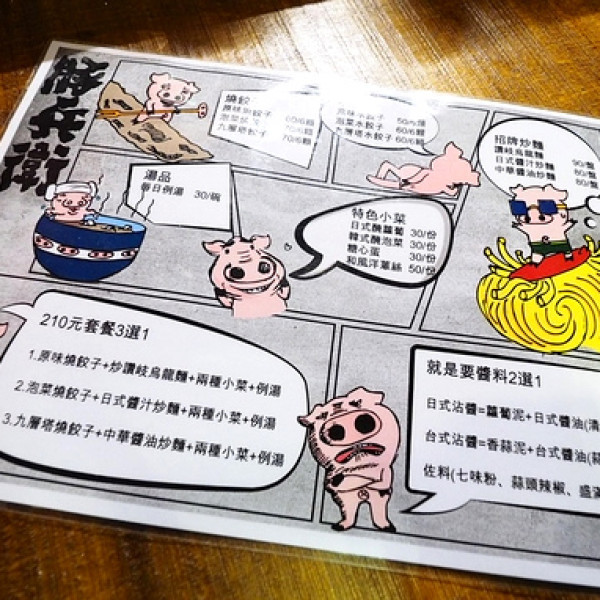 燒餃
原味燒餃子 60/6顆
泡菜燒餃子 70/6顆
九層塔餃子 70/6顆
50/6顆
泡菜水餃子 60/6顆
九層塔水餃子 60/6顆
招牌炒麵
讚岐烏龍麵 90/盤
日式醬汁炒麵 80/盤
中華醬油炒麵 80/盤
湯品
每日例湯 30/碗
特色小菜
日式醃蘿蔔 30/份
韓式醃泡菜 30/份
糖心蛋 30/份
和風洋蔥絲 50/份
210元套餐3選1
1.原味燒餃子+炒讚岐烏龍麵+兩種小菜+例湯
2.泡菜燒餃子+日式醬汁炒麵+兩種小菜+例湯
3.九層塔燒餃子+中華醬油炒麵+兩種小菜+例湯
就是要醬料2選1
日式沾醬=蘿蔔泥+日式醬油(清
台式沾醬=香蒜泥+台式醬油(蒜
佐料(七味粉、蒜頭辣椒、盛滿